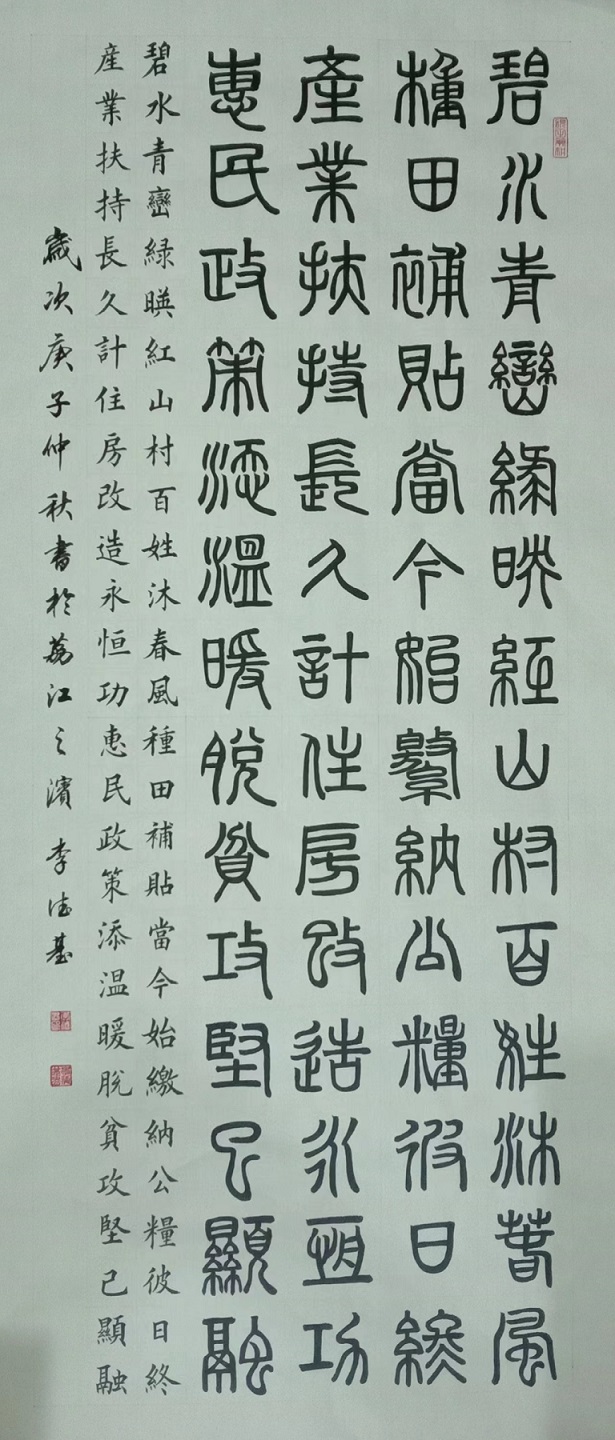 碧水青巒綠映紅山村百姓沐春風
種田補貼當今始繳納公糧彼日終
產業扶持長久計住房改造永恆功
惠民政策添溫暖脫貧攻堅已顯融
碧水青巒緑暎紅山村百姓沐春風種田補貼當今始繳納公糧彼日終
産業扶持長久計住房改造永恒功惠民政策添温暖脱貧攻堅已顯融
歲次庚子仲秋書於荔江之濱 李德基